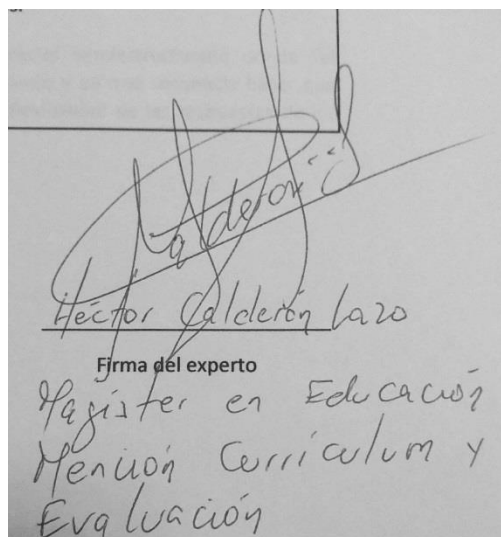 Calderón
Héctor Calderón Lazo
Firma del experto
Magíster en Educación
Mención Curriculum y
Evaluación